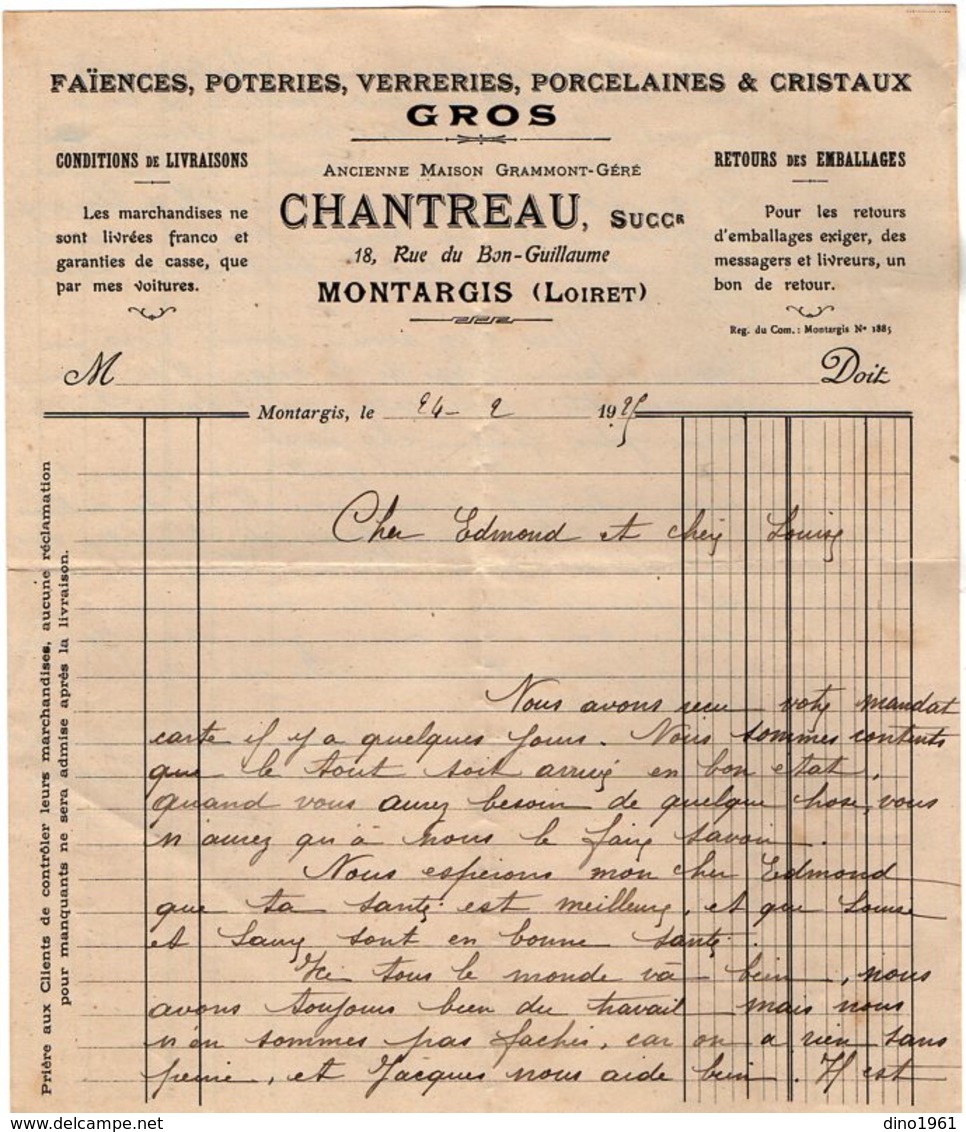 FAÏENCES, POTERIES, VERRERIES, PORCELAINES & CRISTAUX
GROS
CONDITIONS DE LIVRAISONS
Les marchandises ne
sont livrées franco et
garanties de casse, que
par mes voitures.
ANCIENNE MAISON GRAMMONT-GÉRÉ
CHANTREAU, SUCCR
18, Rue du Bon-Guillaume
MONTARGIS (LOIRET)
RETOURS DES EMBALLAGES
Pour les retours
d'emballages exiger, des
messagers et livreurs, un
bon de retour.
Reg. du Com. : Montargis No 1885
M Doit
Montargis, le 24-2 1925
Prière aux Clients de contrôler leurs marchandises, aucune réclamation
pour manquants ne sera admise après la livraison.
Cher Edmond et chère Louise
Nous avons reçu votre mandat
carte il y a quelques jours. Nous sommes contents
que le tout soit arrivé en bon etat,
quand vous aurez besoin de quelque hose, vous
n'aurez qu'à nous le faire savoir.
Nous espérons mon cher Edmond
que ta santé est meilleure, et que Louise
et sont en bonne santé.
Ici tous le monde và bien, nous
avons toujours bien du travail mais nous
n'en sommes pas fachés, car on a rien sans
peine, et Jacques nous aide bien. Il est
dino1961